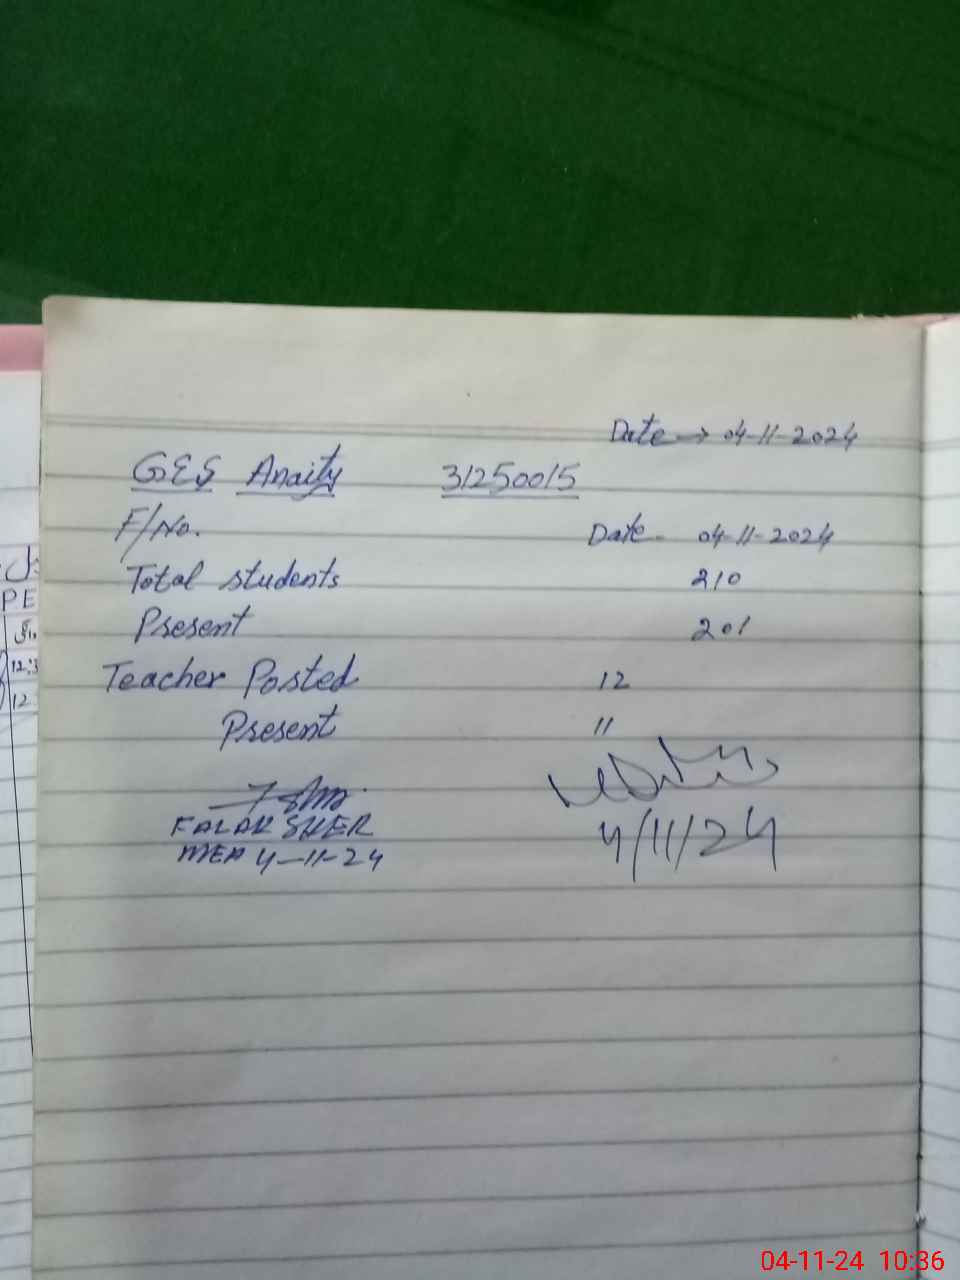 Date → 04-11-2024
GES Anaity 31250015
F/No. Date - 04-11-2024
Total students 210
Present 201
Teacher Posted 12
Present 11
FALAK SHER
MEA 4-11-24
4/11/24
PE
12:3
12
04-11-24 10:36